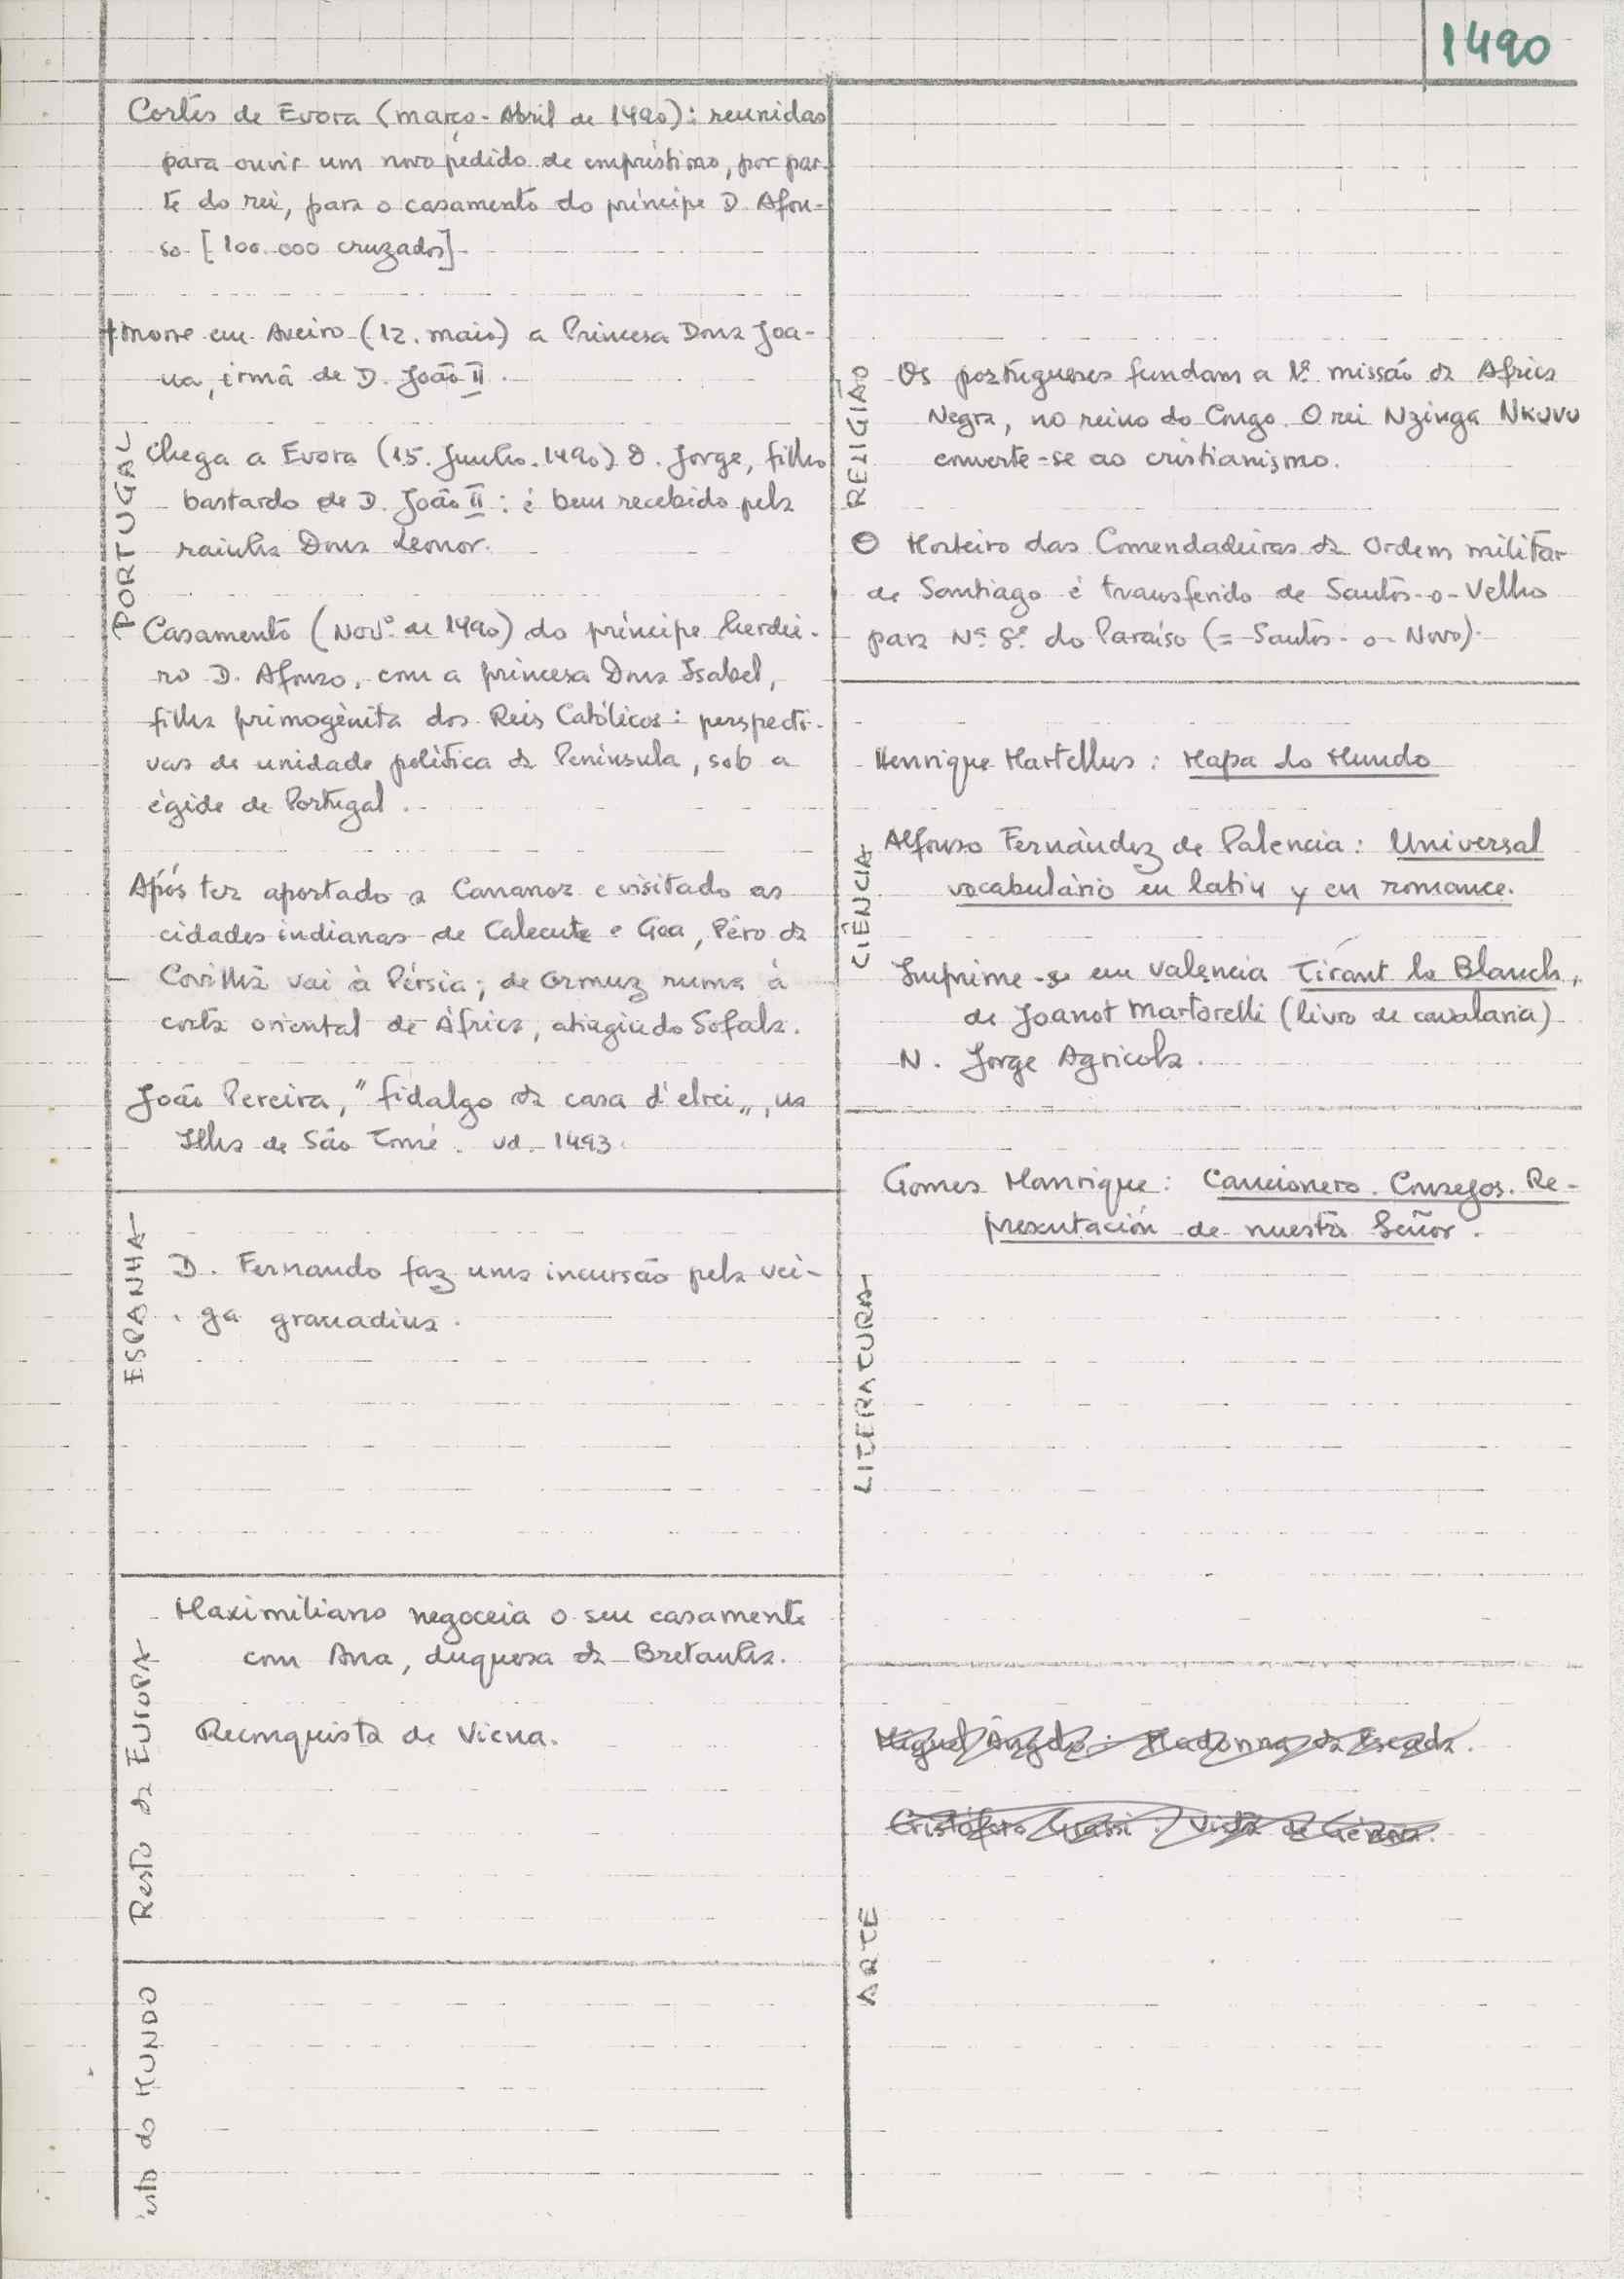 1490
PORTUGAL
Cortes de Evora (março - Abril de 1490): reunidas
para ouvir um novo pedido de empréstimo, por par-
te do rei, para o casamento do príncipe D. Afon-
so [100.000 cruzados]
† morre em Aveiro (12. maio) a Princesa Dona Joa-
na, irmã de D. João II.
Chega a Evora (15. Junho. 1490) D. Jorge, filho
bastardo de D. João II: é bem recebido pela
rainha Dona Leonor.
Casamento (Novº de 1490) do príncipe herdei-
ro D. Afonso, com a princesa Dona Isabel,
filha primogénita dos Reis Católicos: perspecti-
vas de unidade política da Península, sob a
égide de Portugal.
Após ter aportado a Cananor e visitado as
cidades indianas de Calecute e Goa, Pêro da
Covilhã vai à Pérsia; de Ormuz ruma à
costa oriental de África, atingindo Sofala.
João Pereira, "fidalgo da casa d'elrei", na
Ilha de São Tomé. vd. 1493.
ESPANHA
D. Fernando faz uma incursão pela vei-
ga granadina.
Resto da EUROPA
Maximiliano negoceia o seu casamento
com Ana, duquesa da Bretanha.
Reconquista de Viena.
esto do MUNDO
RELIGIÃO
Os portugueses fundam a 1ª missão da Africa
Negra, no reino do Congo. O rei Nzinga NKUVU
converte-se ao cristianismo.
O Mosteiro das Comendadeiras da Ordem militar
de Santiago é transferido de Santos-o-Velho
para Nª Sª do Paraíso (= Santos-o-Novo).
CIÊNCIA
Henrique Martellus: Mapa do Mundo
Alfonso Fernández de Palencia: Universal
vocabulário en latin y en romance.
Imprime-se em Valencia Tirant lo Blanch,
de Joanot Martorelli (livro de cavalaria)
N. Jorge Agricola.
LITERATURA
Gomes Manrique: Cancionero. Consejos. Re-
presentación de nuestro Señor.
ARTE
Miguel Ângelo: Madonna da Escada.
Cristóforo Grassi: Vista de Génova.